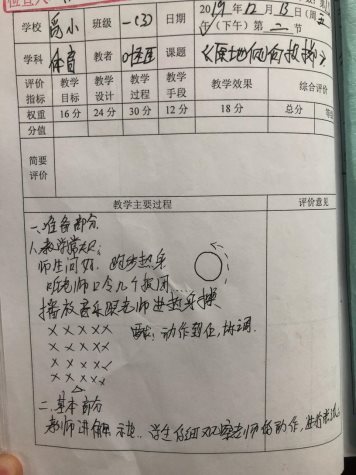 学校 高小 班级 一(3) 日期 2019年12月13日(周五
午(下午)第二节
学科 体育 教者 课题 《原地侧向投掷》
评价指标 教学目标 教学设计 教学过程 教学手段 教学效果 综合评价
权重 16分 24分 30分 12分 18分 总分
分值
简要评价
教学主要过程 评价意见
一、准备部分
1、教学常规:
师生问好. 跑步热身
听老师口令几个
播放音乐跟老师做热身操
×××××
××××× 要求:动作到位,协调.
×××××
×××××
二、基本部分
教师讲解示范... 学生仔细观察老师的动作,